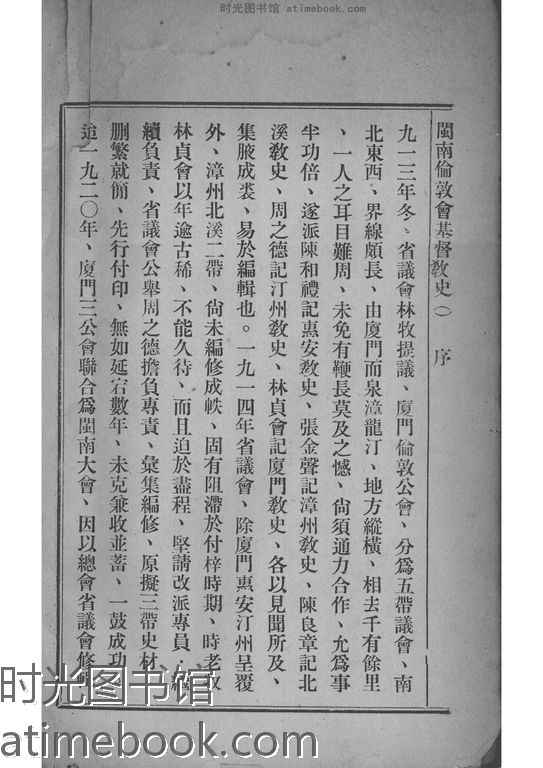 时光图书馆 atimebook.com
閩南倫敦會基督敎史(一) 序
九一三年冬、省議會林牧提議、廈門倫敦公會、分爲五帶議會、南
北東西、界線頗長、由廈門而泉漳龍汀、地方縱橫、相去千有餘里
、一人之耳目難周、未免有鞭長莫及之憾、尙須通力合作、允爲事
半功倍、遂派陳和禮記惠安敎史、張金聲記漳州敎史、陳良章記北
溪敎史、周之德記汀州敎史、林貞會記廈門敎史、各以見聞所及、
集腋成裘、易於編輯也。一九一四年省議會、除廈門惠安汀州呈覆
外、漳州北溪二帶、尙未編修成帙、固有阻滯於付梓時期、時老牧
林貞會以年逾古稀、不能久待、而且迫於盡程、堅請改派專員
續負責、省議會公舉周之德擔負專責、彙集編修、原擬三帶史材
删繁就簡、先行付印、無如延宕數年、未克兼收並蓄、一鼓成功
迨一九二〇年、廈門三公會聯合爲閩南大會、因以總會省議會修
时光图书馆
atimebook.com